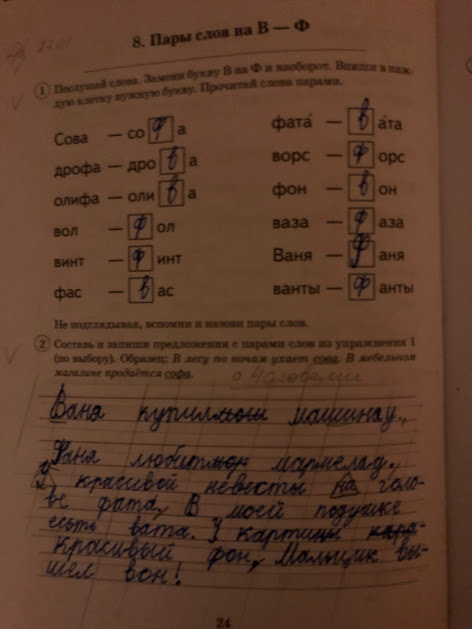 8. Пары слов на В — Ф
1 Послушай слова. Замени букву В на Ф и наоборот. Впиши в каж-
дую клетку нужную букву. Прочитай слова парами.
Сова — со ф а фата́ — в а́та
дрофа — дро в а ворс — ф орс
олифа — оли в а фон — в он
вол — ф ол ваза — ф аза
винт — ф инт Ваня — Ф аня
фас — в ас ванты — ф анты
Не подглядывая, вспомни и назови пары слов.
2 Составь и запиши предложения с парами слов из упражнения 1
(по выбору). Образец: В лесу по ночам ухает сова. В мебельном
магазине продаётся софа.
Ваня купил машинау.
Фаня любит мармелад.
У красивой невесты на голо-
ве фата, В моей подушке
есьть вата. У картины
красивый фон, Мальчик вы-
шел вон!
24